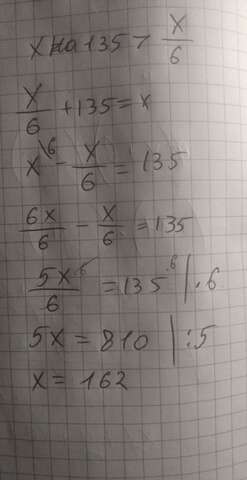 x на 135 > x/6
x/6 + 135 = x
x^6 - x/6 = 135
6x/6 - x/6 = 135
5x^6/6 = 135^6 | · 6
5x = 810 | : 5
x = 162